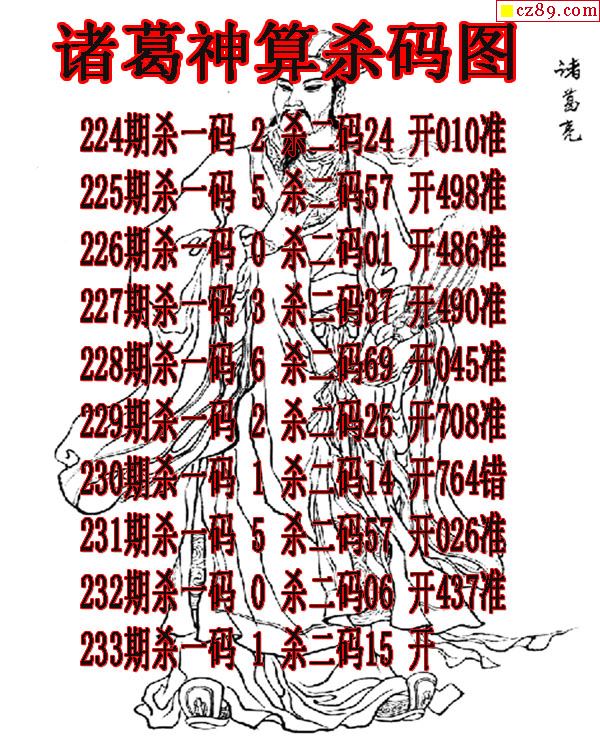 cz89.com
诸葛神算杀码图
诸葛亮
224期杀一码 2 杀二码24 开010准
225期杀一码 5 杀二码57 开498准
226期杀一码 0 杀二码01 开486准
227期杀一码 3 杀二码37 开490准
228期杀一码 6 杀二码69 开045准
229期杀一码 2 杀二码25 开708准
230期杀一码 1 杀二码14 开764错
231期杀一码 5 杀二码57 开026准
232期杀一码 0 杀二码06 开437准
233期杀一码 1 杀二码15 开